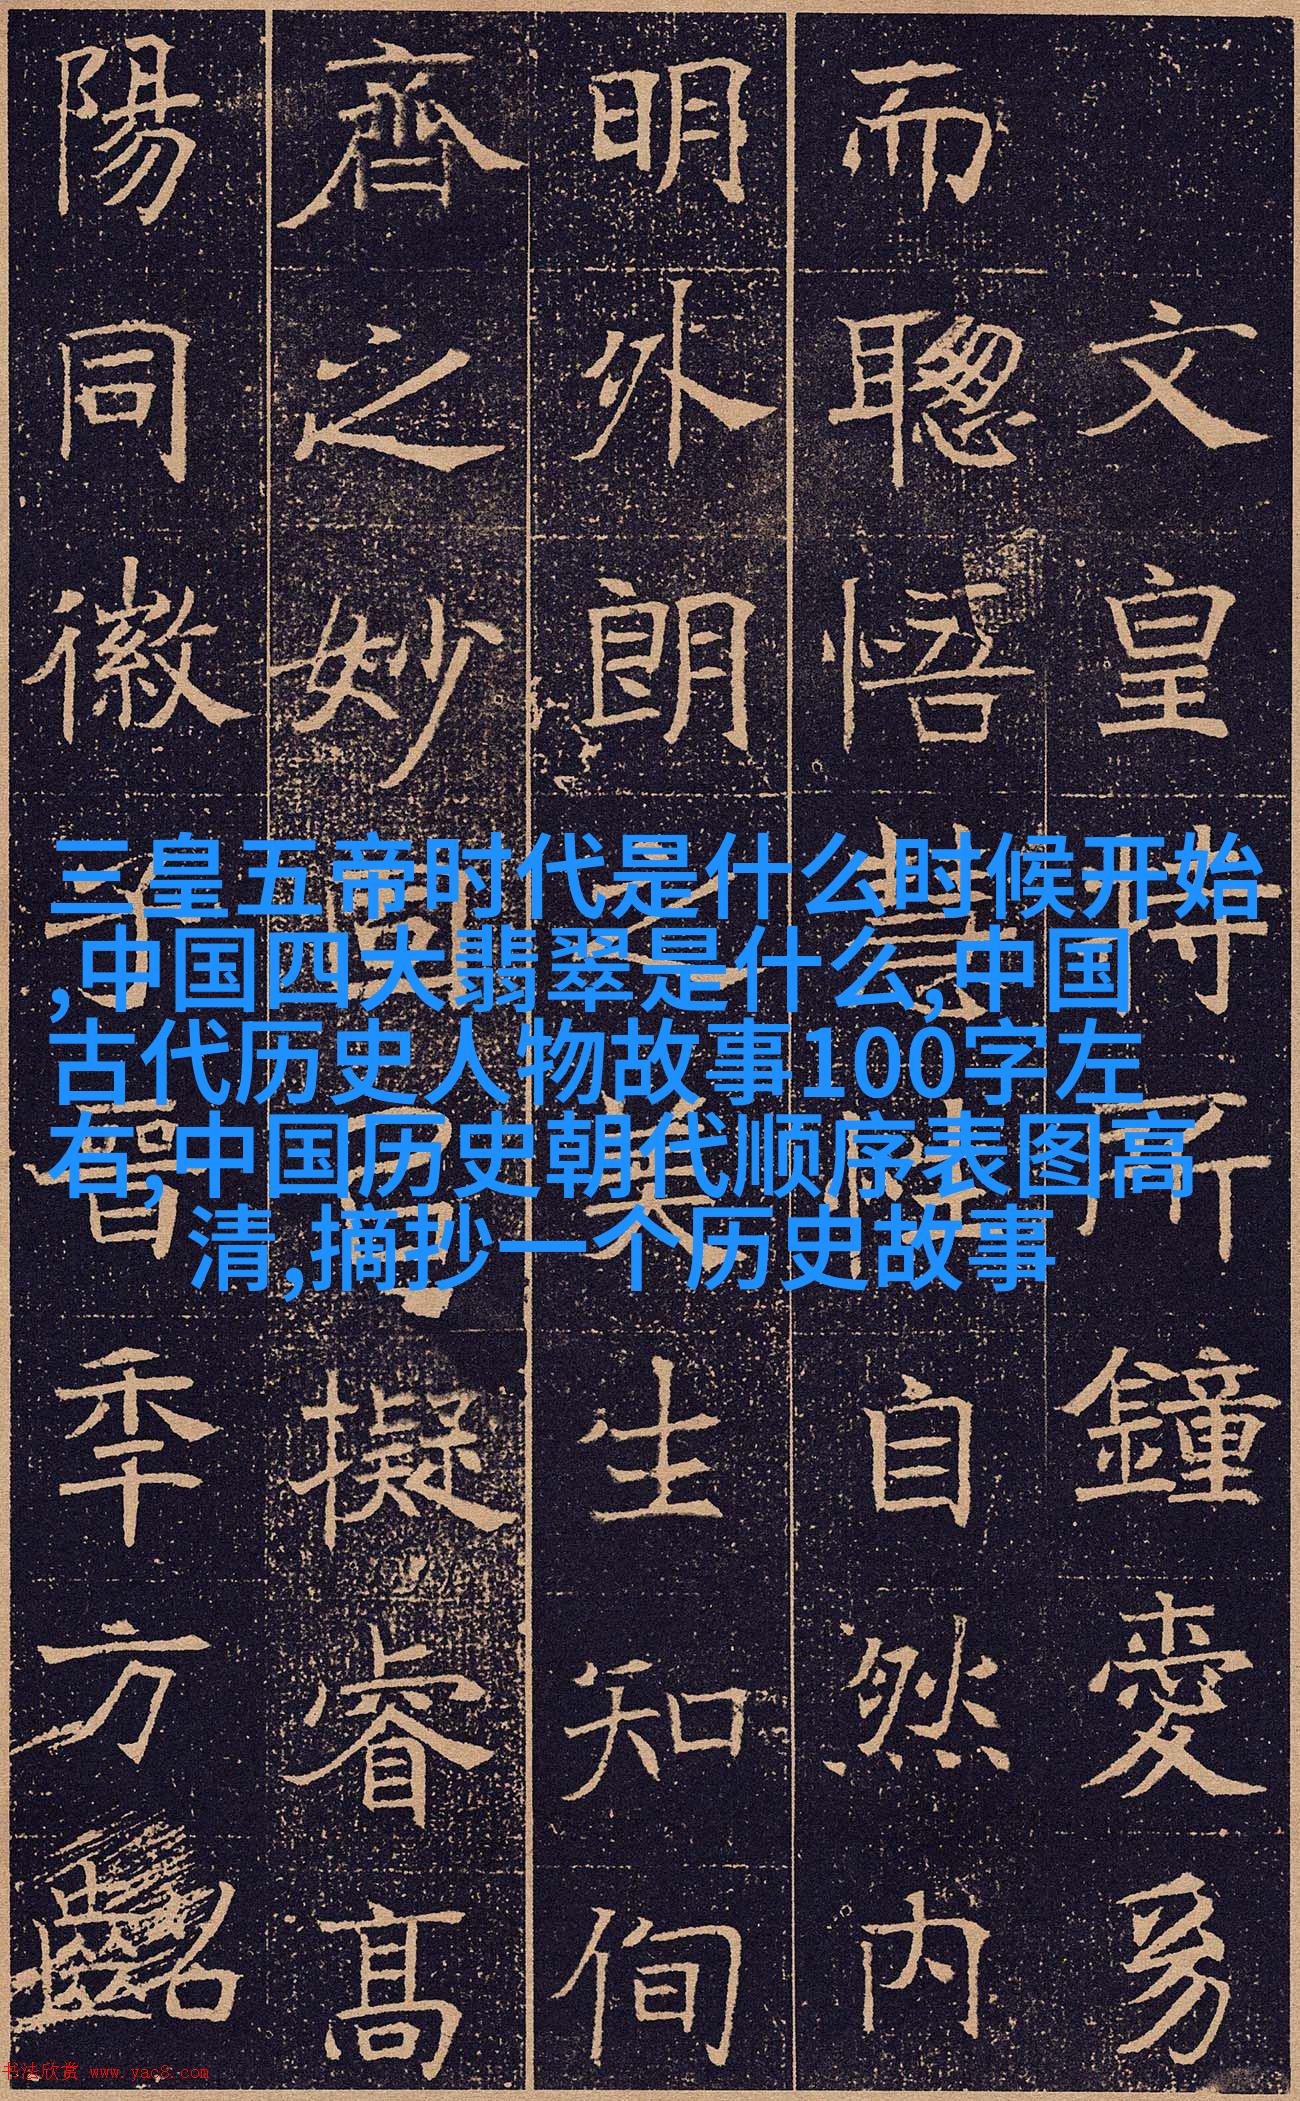 文皇特所鐘愛
而聰悟慧性自然内
明外朗之美生知侚
齊之妙擬睿髙
陽同徽子智季方齠
三皇五帝时代是什么时候开始
,中国四大翡翠是什么,中国
古代历史人物故事100字左
右,中国历史朝代顺序表图高
清,摘抄一个历史故事
书法欣赏 www.yac8.com